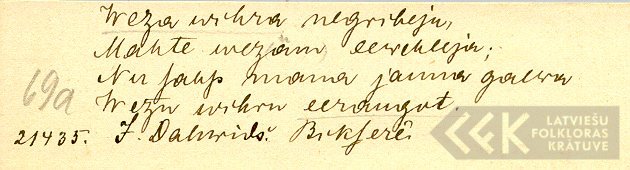 Weza wihra negribeju,
Mahte wezam eewehleja;
Nu sahp mana jauna galwa
Wezu wihru eeraugot.
69a
21435. J. Dahwids. Bikserē
LATVIEŠU
FOLKLORAS
KRĀTUVE